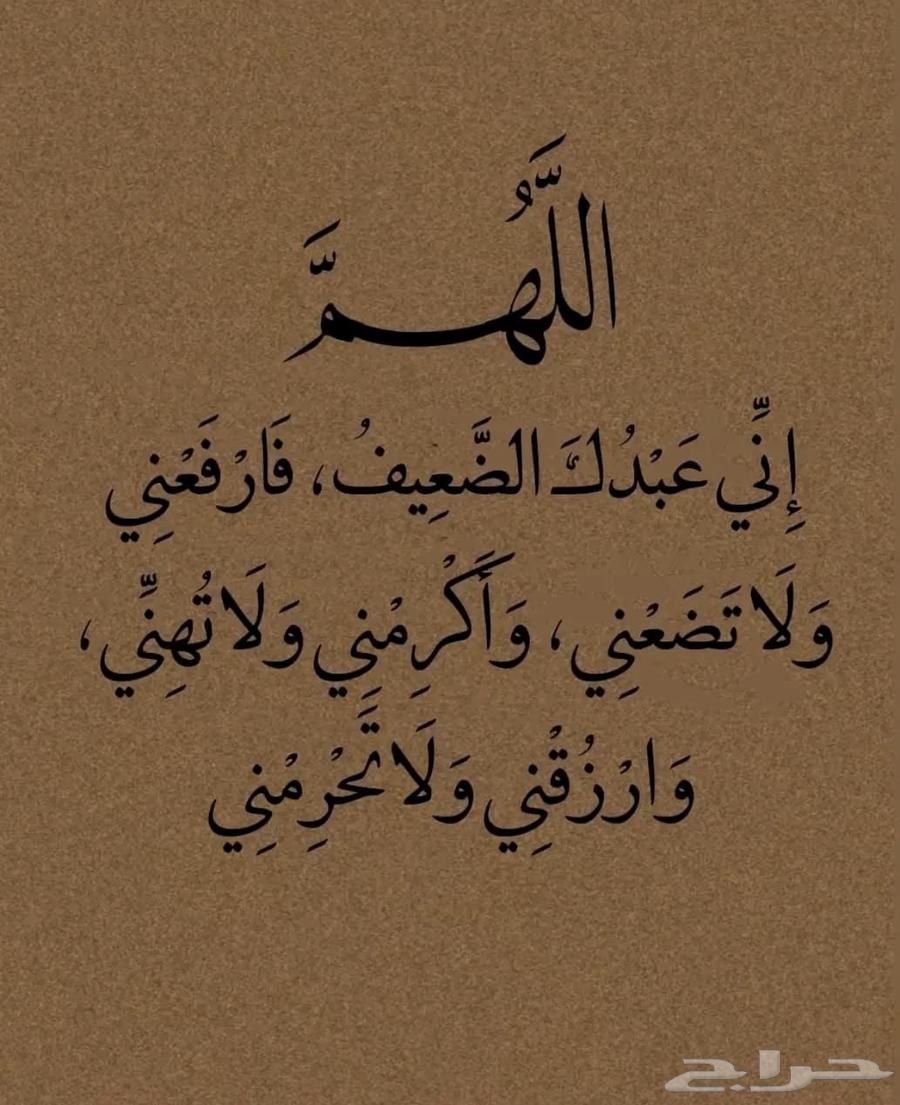 اللَّهُمَّ
إِنِّي عَبْدُكَ الضَّعِيفُ، فَارْفَعْنِي
وَلَا تَضَعْنِي، وَأَكْرِمْنِي وَلَا تُهِنِّي،
وَارْزُقْنِي وَلَا تَحْرِمْنِي
حراج